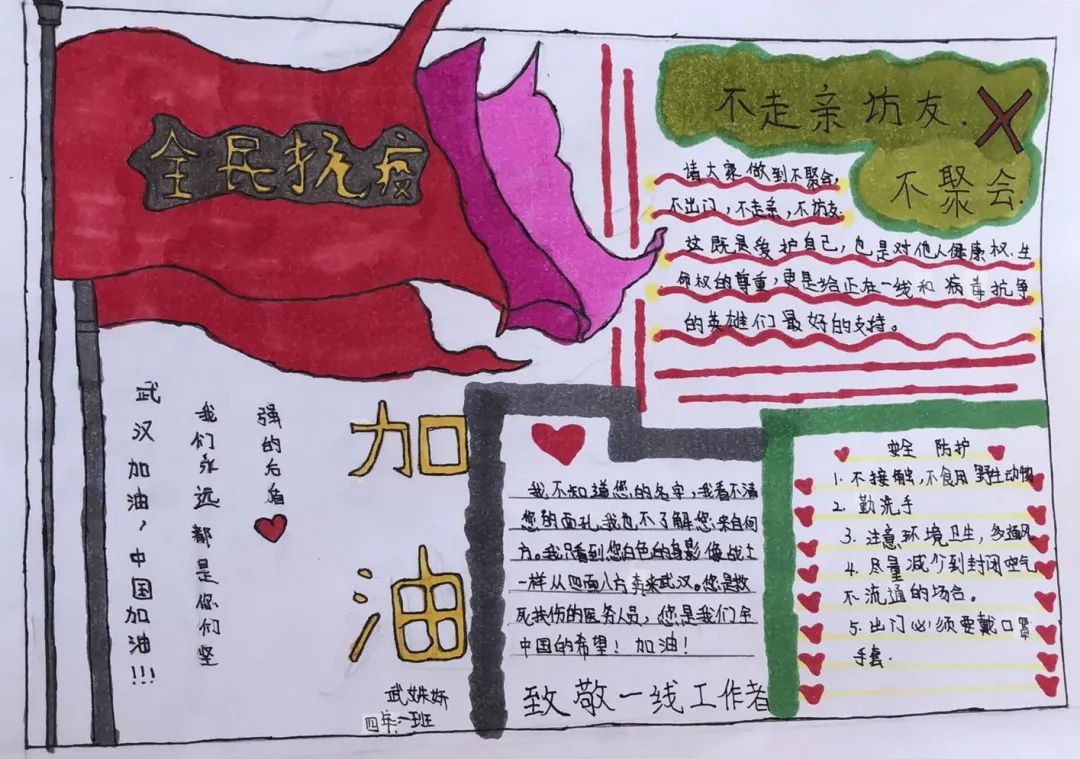 全民抗疫
不走亲访友.
不聚会.
请大家做到不聚会,
不出门,不走亲,不访友
这既是爱护自己,也是对他人健康权、生
命权的尊重,更是给正在一线和病毒抗争
的英雄们最好的支持。
武汉加油,中国加油!!!
我们永远都是你们坚
强的后盾
加油
武姝妍
四年一班
我不知道您的名字,我看不清
您的面孔,我也不了解您来自何
方。我只看到您白色的身影像战士
一样从四面八方奔来武汉。您是救
死扶伤的医务人员,您是我们全
中国的希望!加油!
致敬一线工作者
安全防护
1.不接触,不食用野生动物
2.勤洗手
3.注意环境卫生,多通风
4.尽量减少到封闭空气
不流通的场合。
5.出门必须要戴口罩
手套.